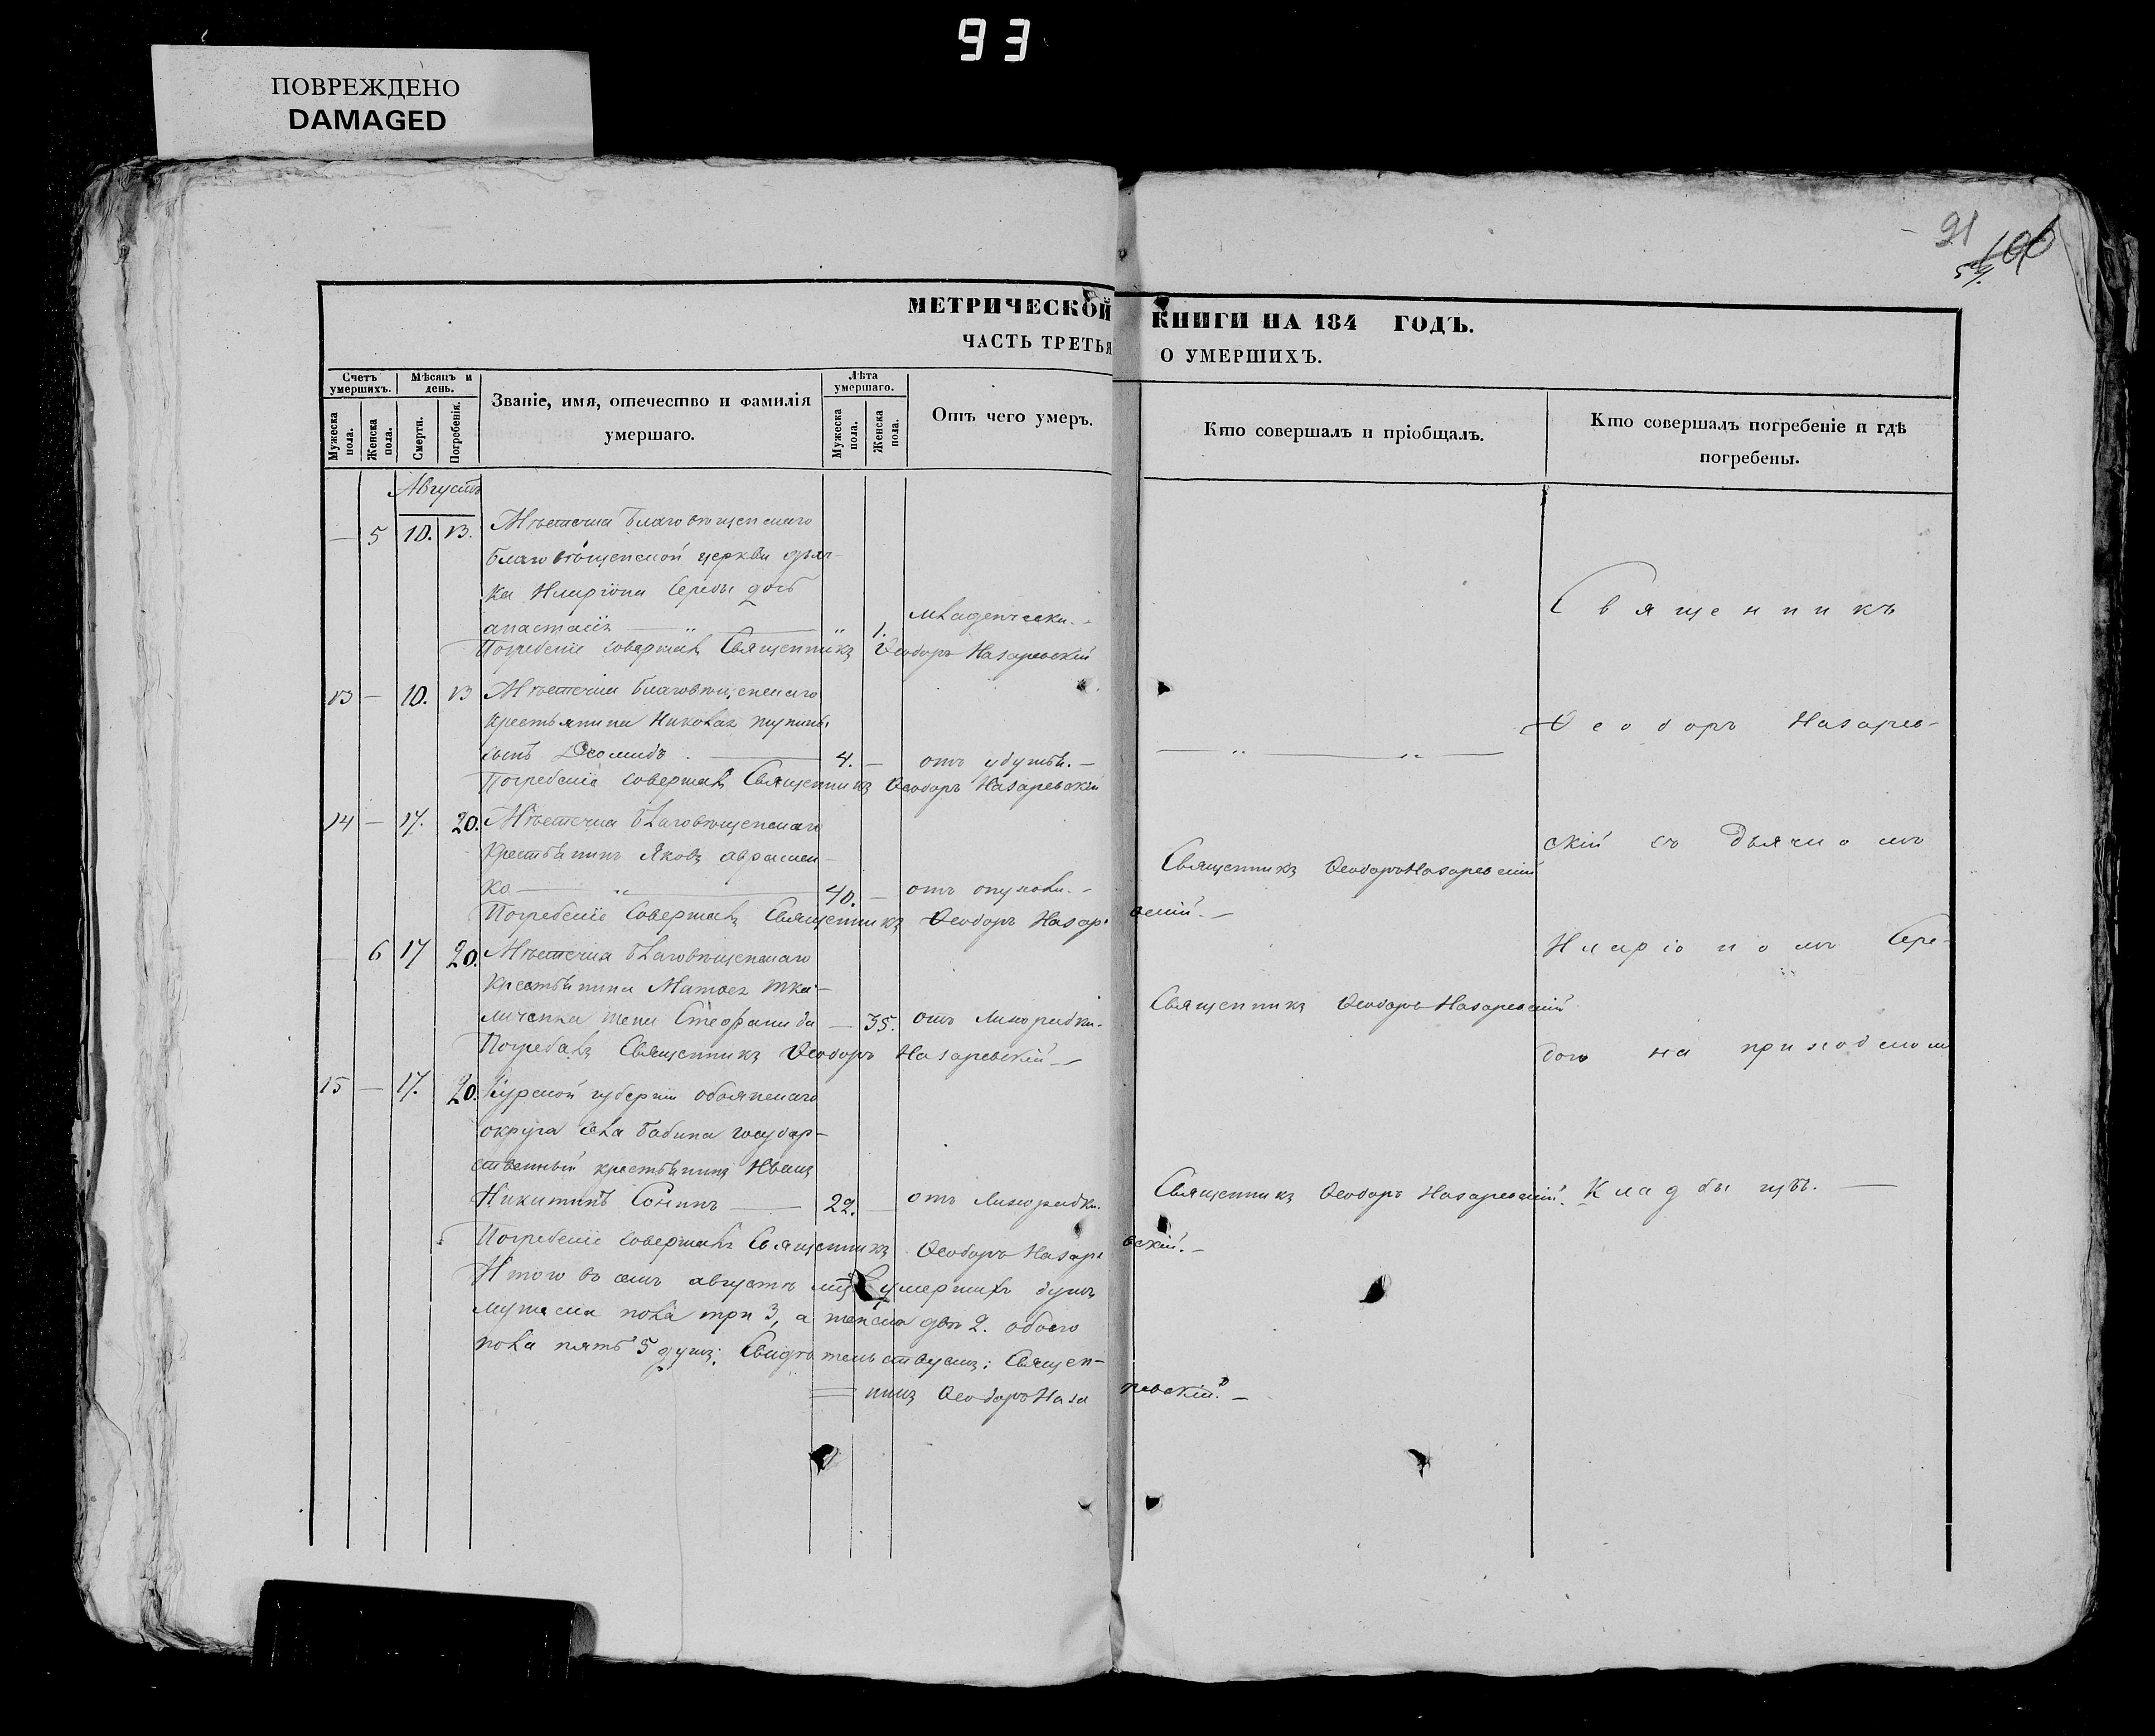 93
ПОВРЕЖДЕНО
DAMAGED
91
МЕТРИЧЕСКОЙ КНИГИ НА 184 ГОДЪ.
ЧАСТЬ ТРЕТЬЯ О УМЕРШИХЪ.
Счетъ умершихъ.
Мужеска пола.
Женска пола.
Мѣсяцъ и день.
Смерти.
Погребенія.
Званіе, имя, отечество и фамилія умершаго.
Лѣта умершаго.
Мужеска пола.
Женска пола.
Отъ чего умеръ.
Кто совершалъ и пріобщалъ.
Кто совершалъ погребеніе и гдѣ погребены.
Августъ
— 5 10. 13. Мѣстечка Благовѣщенскаго
Благовѣщенской церкви дьяч-
ка Иларіона Середы дочь
анастасія — „ — „ 1. младенчески. -
Погребеніе совершалъ Священникъ Ѳеодоръ Назаревскій
13 — 10. 13 Мѣстечка Благовѣщенскаго
крестьянина Николая
сынъ Діомидъ. — 4. — отъ —
Погребеніе совершалъ Священникъ Ѳеодоръ Назаревскій
14 — 17. 20. Мѣстечка Благовѣщенскаго
крестьянинъ Яковъ авраmен-
ко — „ — 40. — отъ опухоли. - Священникъ Ѳеодоръ Назаревскій
Погребеніе совершалъ Священникъ Ѳеодоръ Назаревскій. —
— 6 17 20. Мѣстечка Благовѣщенскаго
крестьянина Матѳея Тка-
личенка жена Стефанида — 35. отъ лихорадки. Священникъ Ѳеодоръ Назаревскій
Погребалъ Священникъ Ѳеодоръ Назаревскій —
15 — 17. 20. Курской губерніи обоянскаго
округа села Бабина государ-
ственный крестьянинъ Иванъ
Никитинъ Сонинъ — 22. — отъ лихорадки. Священникъ Ѳеодоръ Назаревскій.
Погребеніе совершалъ Священникъ Ѳеодоръ Назаревскій. —
Итого въ семъ августѣ умершихъ душъ
мужеска пола три 3, а женска двѣ 2. обоего
пола пять 5 душъ: Свидѣтельствуемъ: Священ-
никъ Ѳеодоръ Назаревскій. —
Священникъ
Ѳеодоръ Назарев-
скій съ дьячкомъ
Иларіономъ Сере-
дою на приходскомъ
кладбищѣ. —